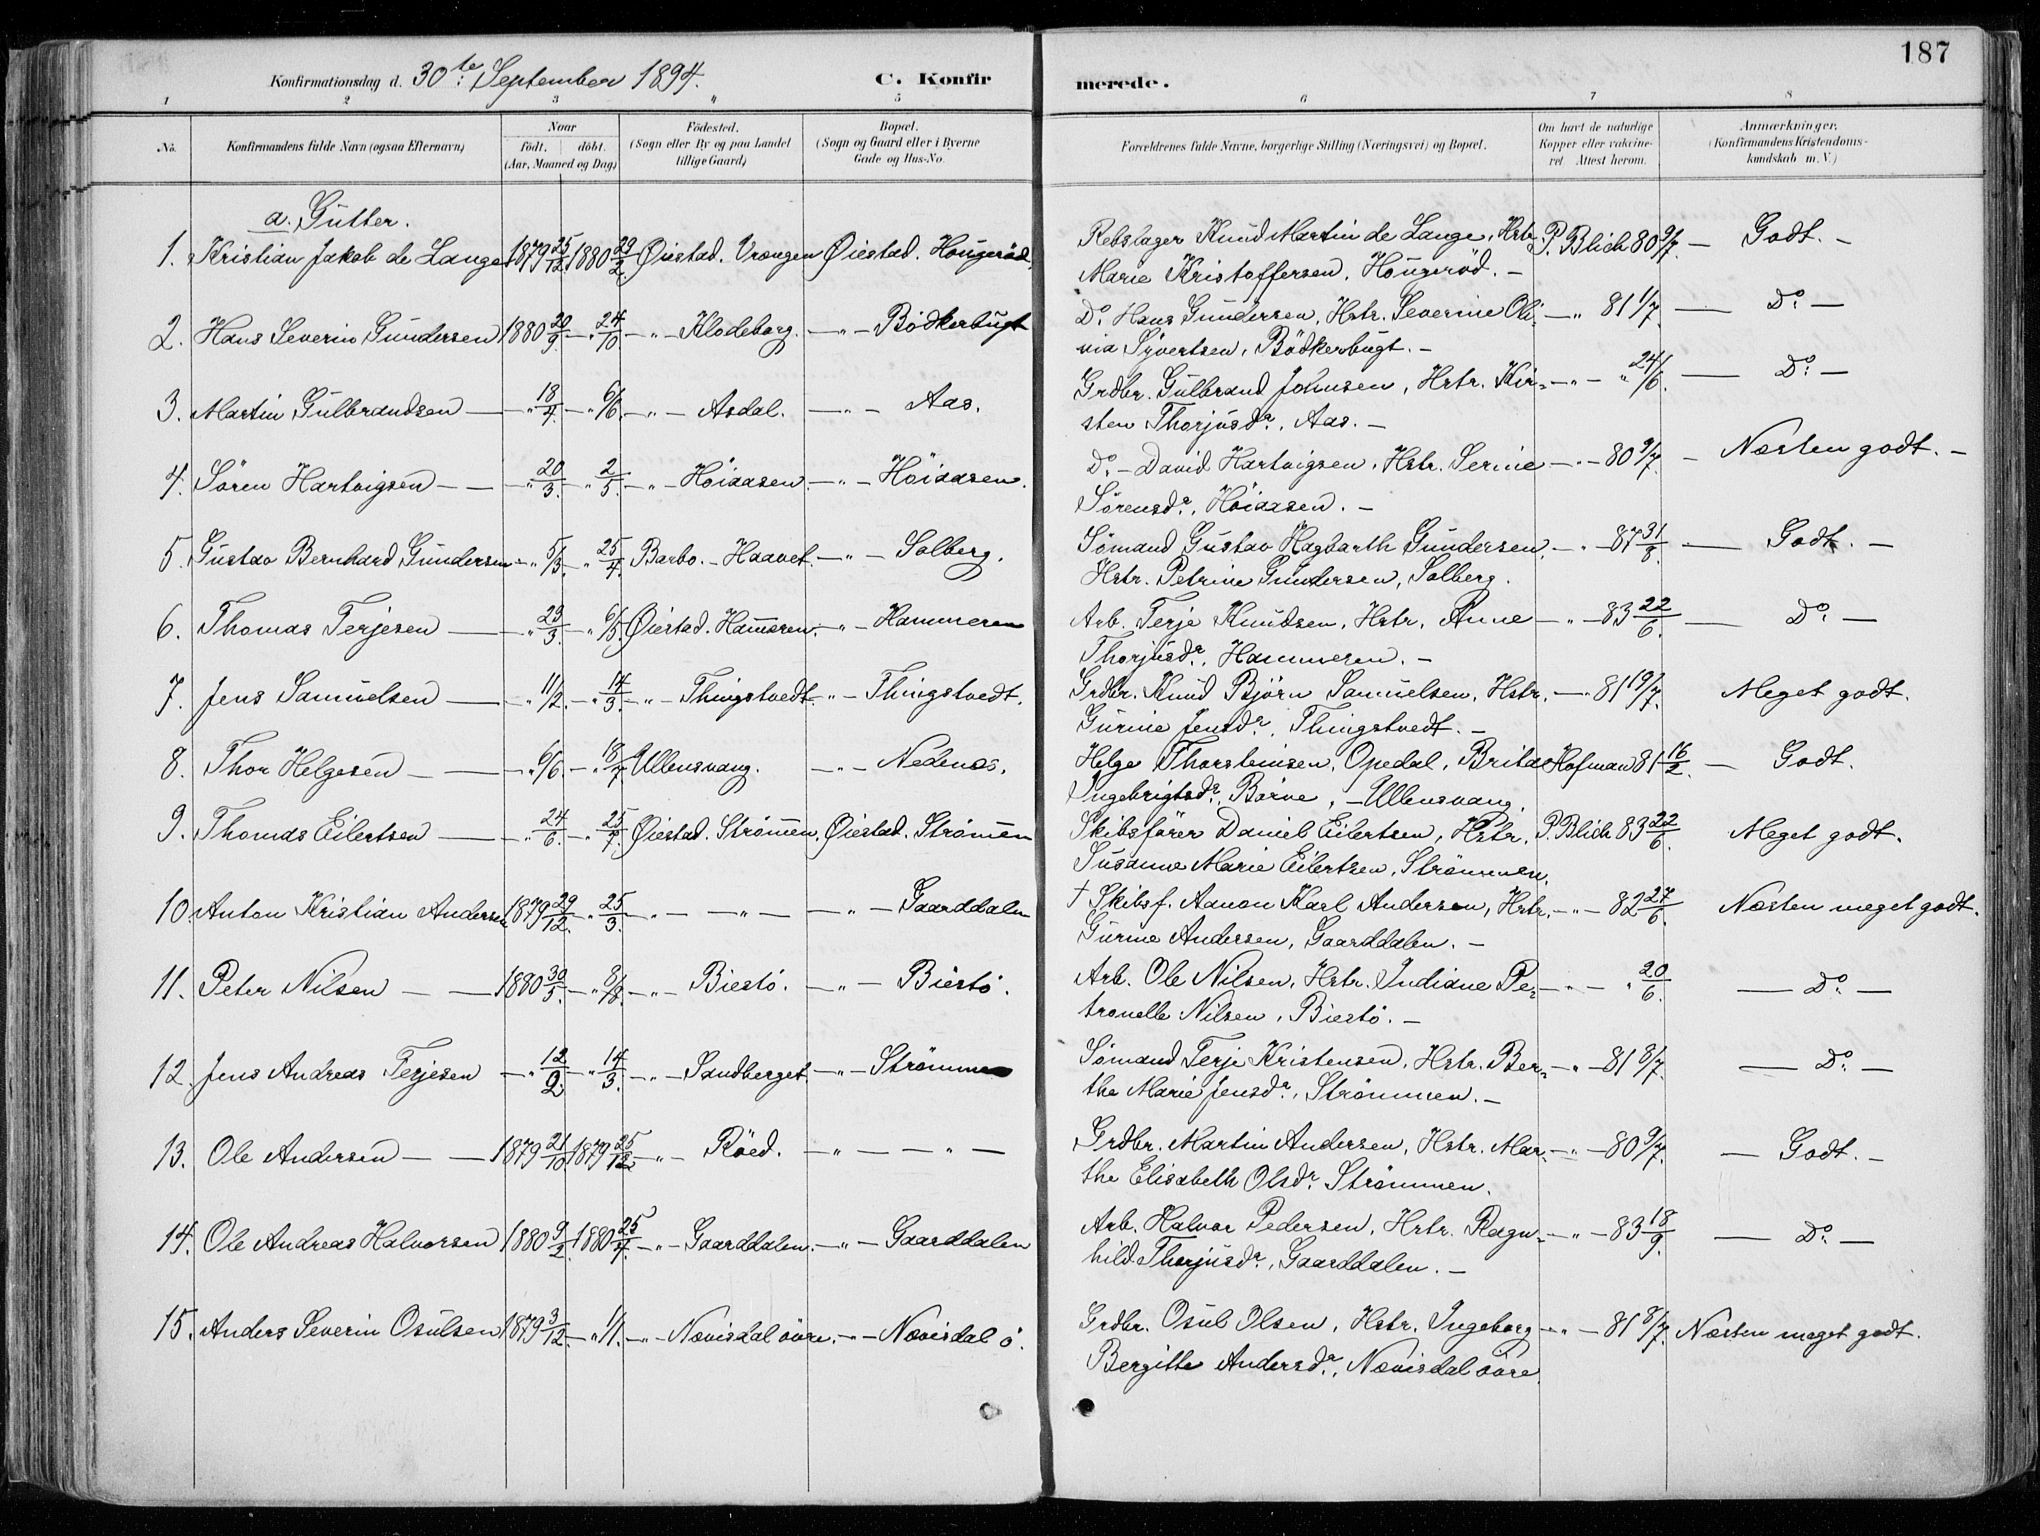 187
Konfirmationsdag d. 30te September 1894. C. Konfir merede.
1 2 3 4 5 6 7 8
No. Konfirmandens fulde Navn (ogsaa Efternavn) Naar født. døbt. (Aar, Maaned og Dag) Fødested. (Sogn eller By og paa Landet tillige Gaard) Bopæl. (Sogn og Gaard eller i Byerne Gade og Hus-No. Forældrenes fulde Navne, borgerlige Stilling (Næringsvei) og Bopæl. Om havt de naturlige Kopper eller vakcineret. Attest herom. Anmærkninger. (Konfirmandens Kristendomskundskab m. V.)
a. Gutter.
1. Kristian Jakob de Lange 1879 25/12 1880 29/2 Øiestad. Vrængen Øiestad. Hougerød. Rebslager Knud Martin de Lange, Hstr. P. Blich 80 9/7 — Godt. —
Marie Kristoffersen, Hougerød. —
2. Hans Severin Gundersen 1880 20/9 — " 24/10 — " — Klodeborg. — " — Bødkerbugt Do. Hans Gundersen, Hstr. Severine Oli- — " 81 1/7 — Do. —
via Syvertsen, Bødkerbugt. —
3. Martin Gulbrandsen — " 18/4. — " 6/6. — " — Asdal. — " — Aas. Grdbr. Gulbrand Johnsen, Hstr. Kir- — " — " 24/6. — Do. —
sten Thorjusdr., Aas. —
4. Søren Hartvigsen — — " 20/3. — " 2/5. — " — Høiaasen. — " — Høiaasen. Do. — David Hartvigsen, Hstr. Serine — " — 80 9/7. — Næsten godt. —
Sørensdr., Høiaasen. —
5. Gustav Bernhard Gundersen — " 5/3. — " 25/4. Barbo. — Haavet. — " — Solberg. Sømand Gustav Hagbarth Gundersen, — " — 87 31/8. — Godt. —
Hstr. Petrine Gundersen, Solberg.
6. Thomas Terjesen — " 23/3. — " 6/5. Øiestad. Hameren. — " — Hammeren Arb. Terje Knudsen, Hstr. Anne — " — 83 22/6. — Do. —
Thorjusdr., Hammeren. —
7. Jens Samuelsen — " 11/2. — " 14/3. — " — Thingstvedt. — " — Thingstvedt. Grdbr. Knud Bjørn Samuelsen, Hstr. — " 81 19/7. Meget godt.
Gurine Jensdr., Thingstvedt. —
8. Thor Helgesen — — " 6/6. — " 18/7 Ullensvang. — " — Nedenæs. Helge Thorsteinsen, Opedal, Brita Hofman 81 16/2. — Godt.
Ingebrigtsdr., Børve, — Ullensvang.
9. Thomas Eilertsen — " 24/6. — " 25/7. Øiestad. Strømen. Øiestad. Strømen Skibsfører Daniel Eilertsen, Hstr. P. Blich 83 22/6. Meget godt.
Susanne Marie Eilertsen, Strømmen.
10. Anton Kristian Andersen 1879 29/12. " 25/3. — " — — " — — " — Gaarddalen † Skibsf. Aanon Karl Andersen, Hstr. — " — 82 27/6. Næsten meget godt.
Gurine Andersen, Gaarddalen. —
11. Peter Nilsen — — 1880 30/5. — " 8/8. — " — Biestø. — " — Biestø. Arb. Ole Nilsen, Hstr. Indiane Pe- — " — " 20/6. — Do. —
tronelle Nilsen, Biestø. —
12. Jens Andreas Terjesen — " 12/2 — " 14/3. — " — Sandberget. — " — Strømmen Sømand Terje Kristensen, Hstr. Ber- — " — 81 8/7. — Do. —
the Marie Jensdr., Strømmen. —
13. Ole Andersen — — 1879 21/10 1879 25/12 — " — Røed. — " — — " — Grdbr. Martin Andersen, Hstr. Mar- — " — 80 9/7. — Godt. —
the Elisabeth Olsdr. Strømmen.
14. Ole Andreas Halvorsen 1880 9/2. 1880 25/4. — " — Gaarddalen. — " — Gaarddalen Arb. Halvor Pedersen, Hstr. Ragn- — " — 83 18/9. — Do. —
hild Thorjusdr., Gaarddalen. —
15. Anders Severin Osulsen 1879 3/12. — " 1/1. — " — Nævisdal øvre. — " — Nævisdal ø. Grdbr. Osul Olsen, Hstr. Ingeborg — " — 81 8/7. Næsten meget godt.
Bergitte Andersdr., Nævisdal øvre.